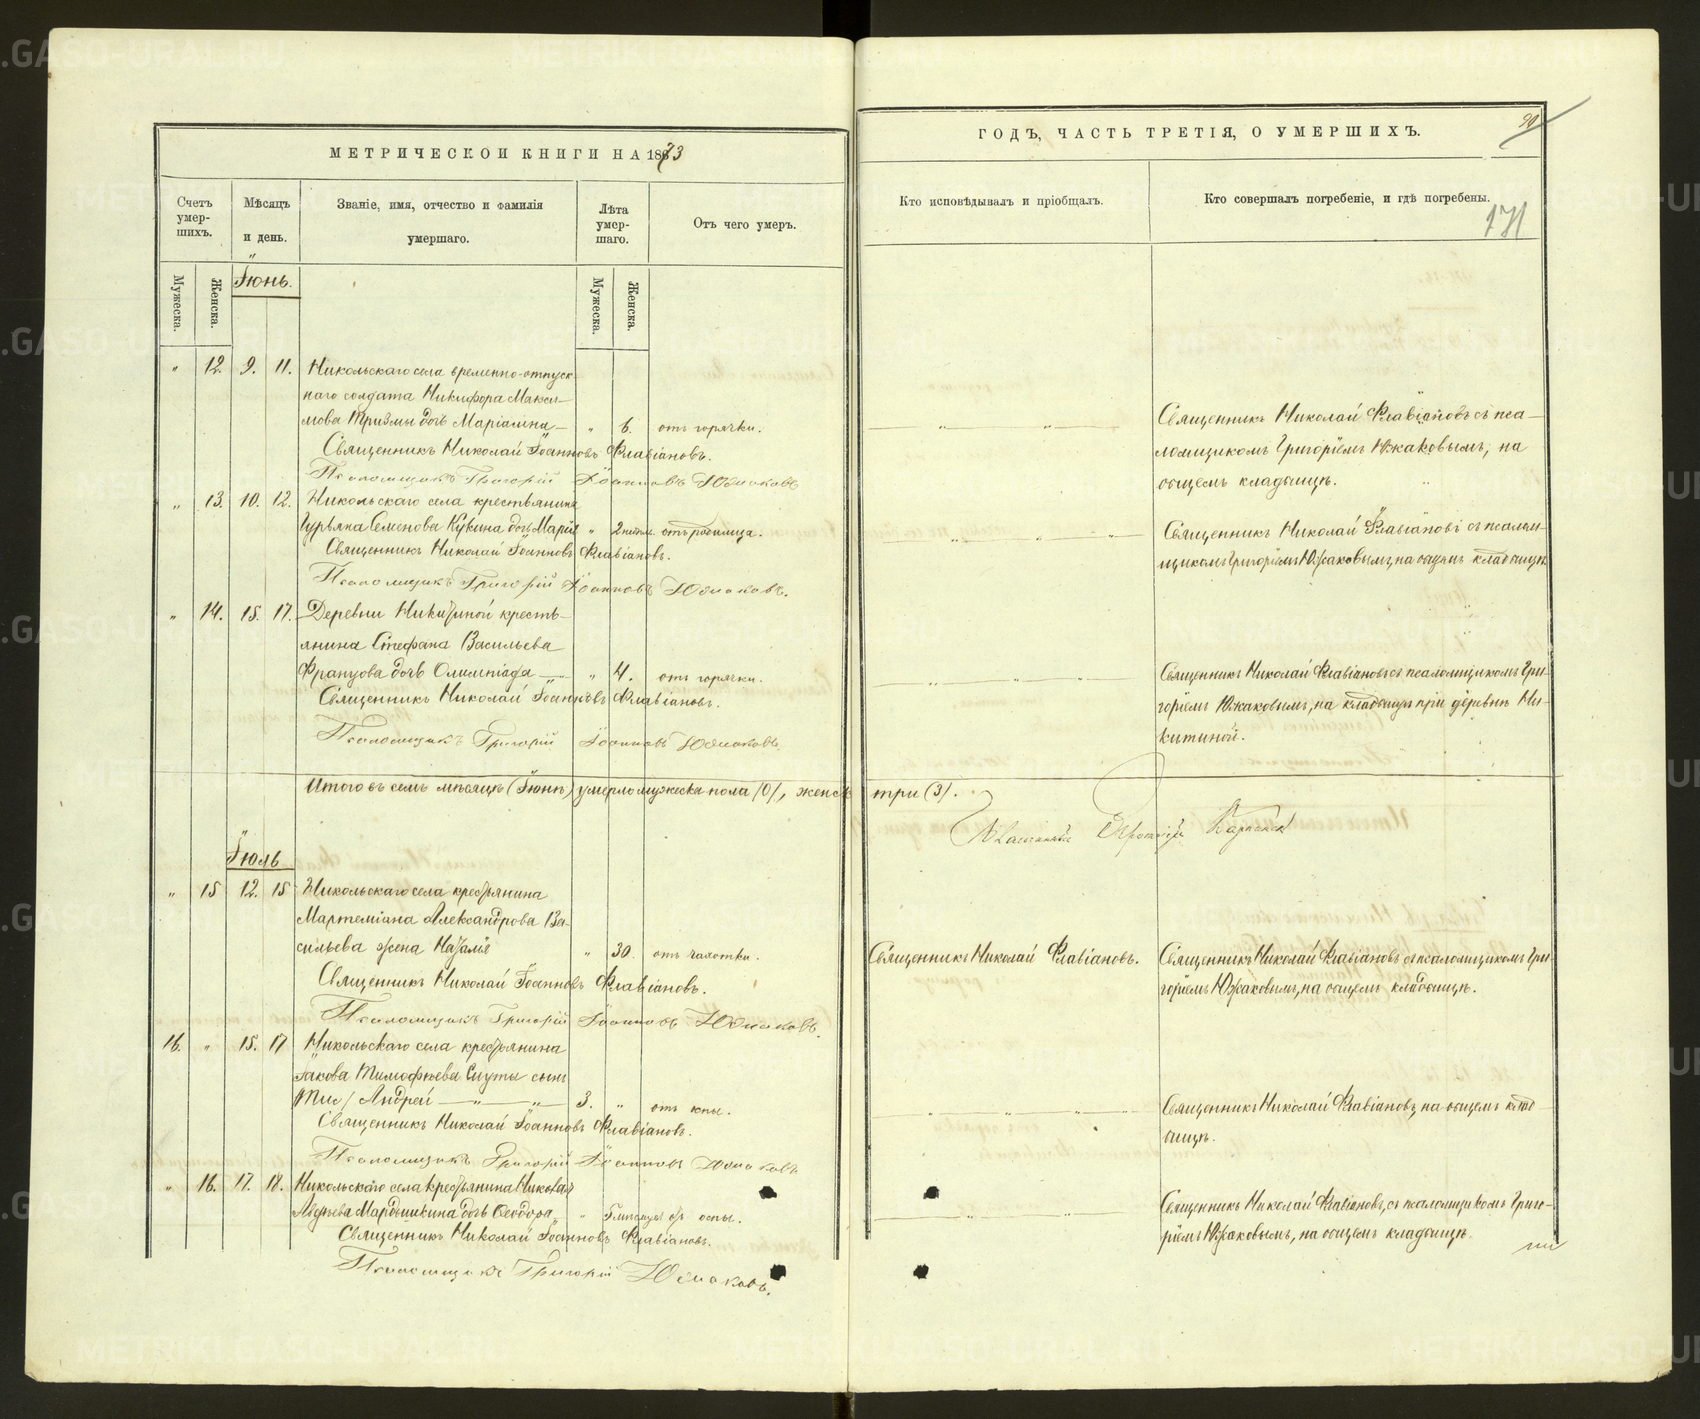 МЕТРИЧЕСКОЙ КНИГИ НА 1873
Счетъ умерших.
Мѣсяцъ и день.
Званіе, имя, отчество и фамилія умершаго.
Лѣта умершаго.
Отъ чего умеръ.
Мужеска.
Женска.
Мужеска.
Женска.
Іюнь.
" 12. 9. 11. Никольскаго села временно-отпуск
наго солдата Никифора Макси-
мова Тризмы дочь Маріамна — " 6. отъ горячки.
Священникъ Николай Іоанновъ Флавіановъ.
Псаломщикъ Григорій Іоанновъ Южаковъ
" 13. 10. 12. Никольскаго села крестьянина
Гурьяна Семенова Кукина дочь Марія " 2 недѣл. отъ родимца.
Священникъ Николай Іоанновъ Флавіановъ.
Псаломщикъ Григорій Іоанновъ Южаковъ.
" 14. 15. 17. Деревни Никитиной кресть-
янина Стефана Васильева
Францова дочь Олимпіада — " 4. отъ горячки.
Священникъ Николай Іоанновъ Флавіановъ.
Псаломщикъ Григорій Іоанновъ Южаковъ
Итого въ семъ мѣсяцѣ (Іюнѣ) умерло мужеска пола /0/, женск
Іюль
" 15 12. 15 Никольскаго села крестьянина
Мартеміана Александрова Ва-
сильева жена Наталія " 30. отъ чахотки.
Священникъ Николай Іоанновъ Флавіановъ.
Псаломщикъ Григорій Іоанновъ Южаковъ.
16. " 15. 17 Никольскаго села крестьянина
Іакова Тимофѣева Снуты сынъ
Андрей — " — " — 3. " отъ оспы.
Священникъ Николай Іоанновъ Флавіановъ.
Псаломщикъ Григорій Іоанновъ Южаковъ
" 16. 17. 18. Никольскаго села крестьянина Николая
Мардышкина дочь Ѳеодора " отъ оспы.
Священникъ Николай Іоанновъ Флавіановъ.
Псаломщикъ Григорій Южаковъ.
ГОДЪ, ЧАСТЬ ТРЕТІЯ, О УМЕРШИХЪ.
90
Кто исповѣдывалъ и пріобщалъ.
Кто совершалъ погребеніе, и гдѣ погребены.
171
Священникъ Николай Флавіановъ съ пса-
ломщикомъ Григоріемъ Южаковымъ, на
общемъ кладбищѣ.
Священникъ Николай Флавіановъ съ псалом-
щикомъ Григоріемъ Южаковымъ, на общемъ кладбищѣ
Священникъ Николай Флавіановъ съ псаломщикомъ Гри-
горіемъ Южаковымъ, на кладбищѣ при деревнѣ Ни-
китиной.
три (3).
Священникъ Николай Флавіановъ.
Священникъ Николай Флавіановъ съ псаломщикомъ Гри
горіемъ Южаковымъ, на общемъ кладбищѣ.
Священникъ Николай Флавіановъ, на общемъ клад-
бищѣ.
Священникъ Николай Флавіановъ, съ псаломщикомъ Григо-
ріемъ Южаковымъ, на общемъ кладбищѣ.
METRIKI.GASO-URAL.RU